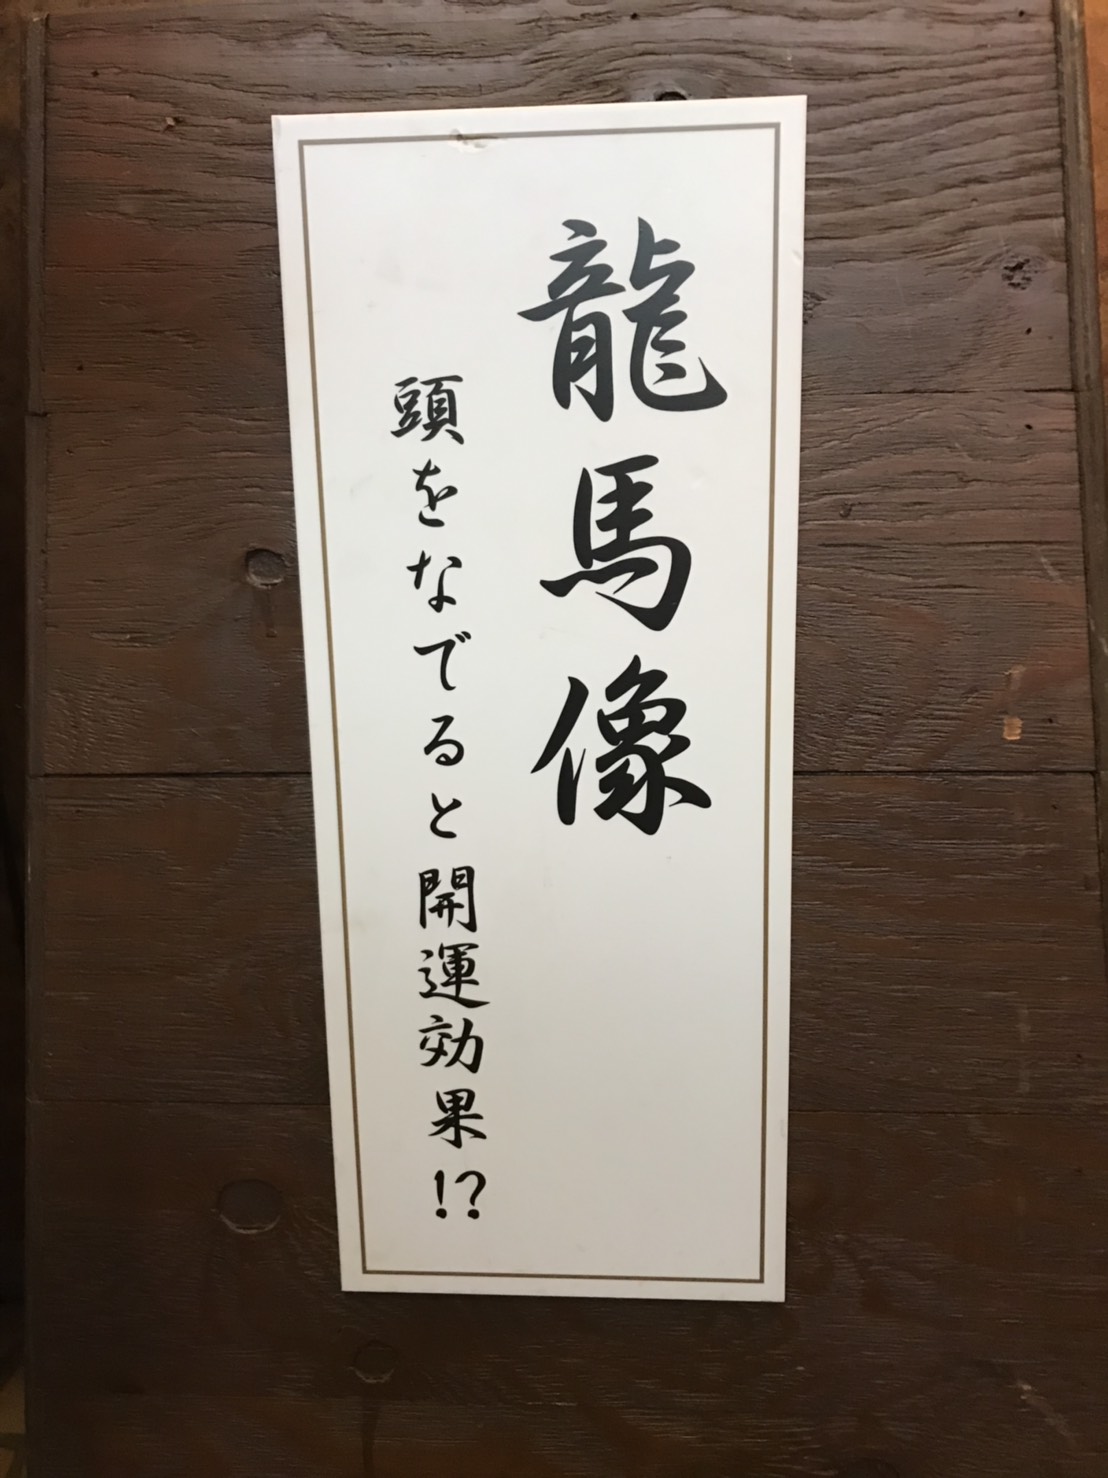 龍馬像
頭をなでると開運効果!?